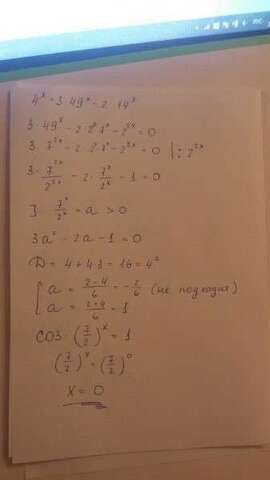 4^x = 3·49^x - 2·14^x
3·49^x - 2·2^x 7^x - 2^2x = 0
3·7^2x - 2·2^x 7^x - 2^2x = 0 | : 2^2x
3·7^2x/2^2x - 2·7^x/2^x - 1 = 0
] 7^x/2^x = a > 0
3a² - 2a - 1 = 0
D = 4 + 4·3 = 16 = 4²
a = (2-4)/6 = -2/6 (не подходит)
a = (2+4)/6 = 1
СОЗ: (7/2)^x = 1
(7/2)^x = (7/2)^0
x = 0